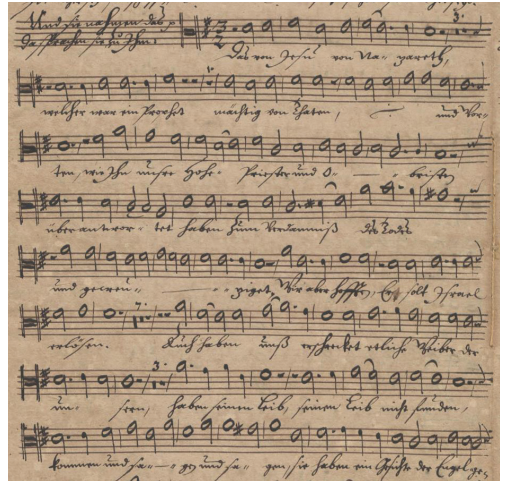 Und sie nahmen das
da sprachen sie zu Ihm:
3.
Das von Jesu von Na- zareth,
welcher war ein Prophet mächtig von Thaten, und Wor-
ten, wie Ihn unsre Hohe- Priester und O- - bristen
überantwor- tet haben zum Verdamniß des Todes
und gecreu- - ziget, Wir aber hofften, Er solt Israel
7.
erlösen. Auch haben unß erschrecket etliche Weiber der
3.
un- sern, haben seinen Leib, seinen Leib nicht funden,
kommen und sa- - gen und sa- gen, sie haben ein Gesichte der Engel ge-